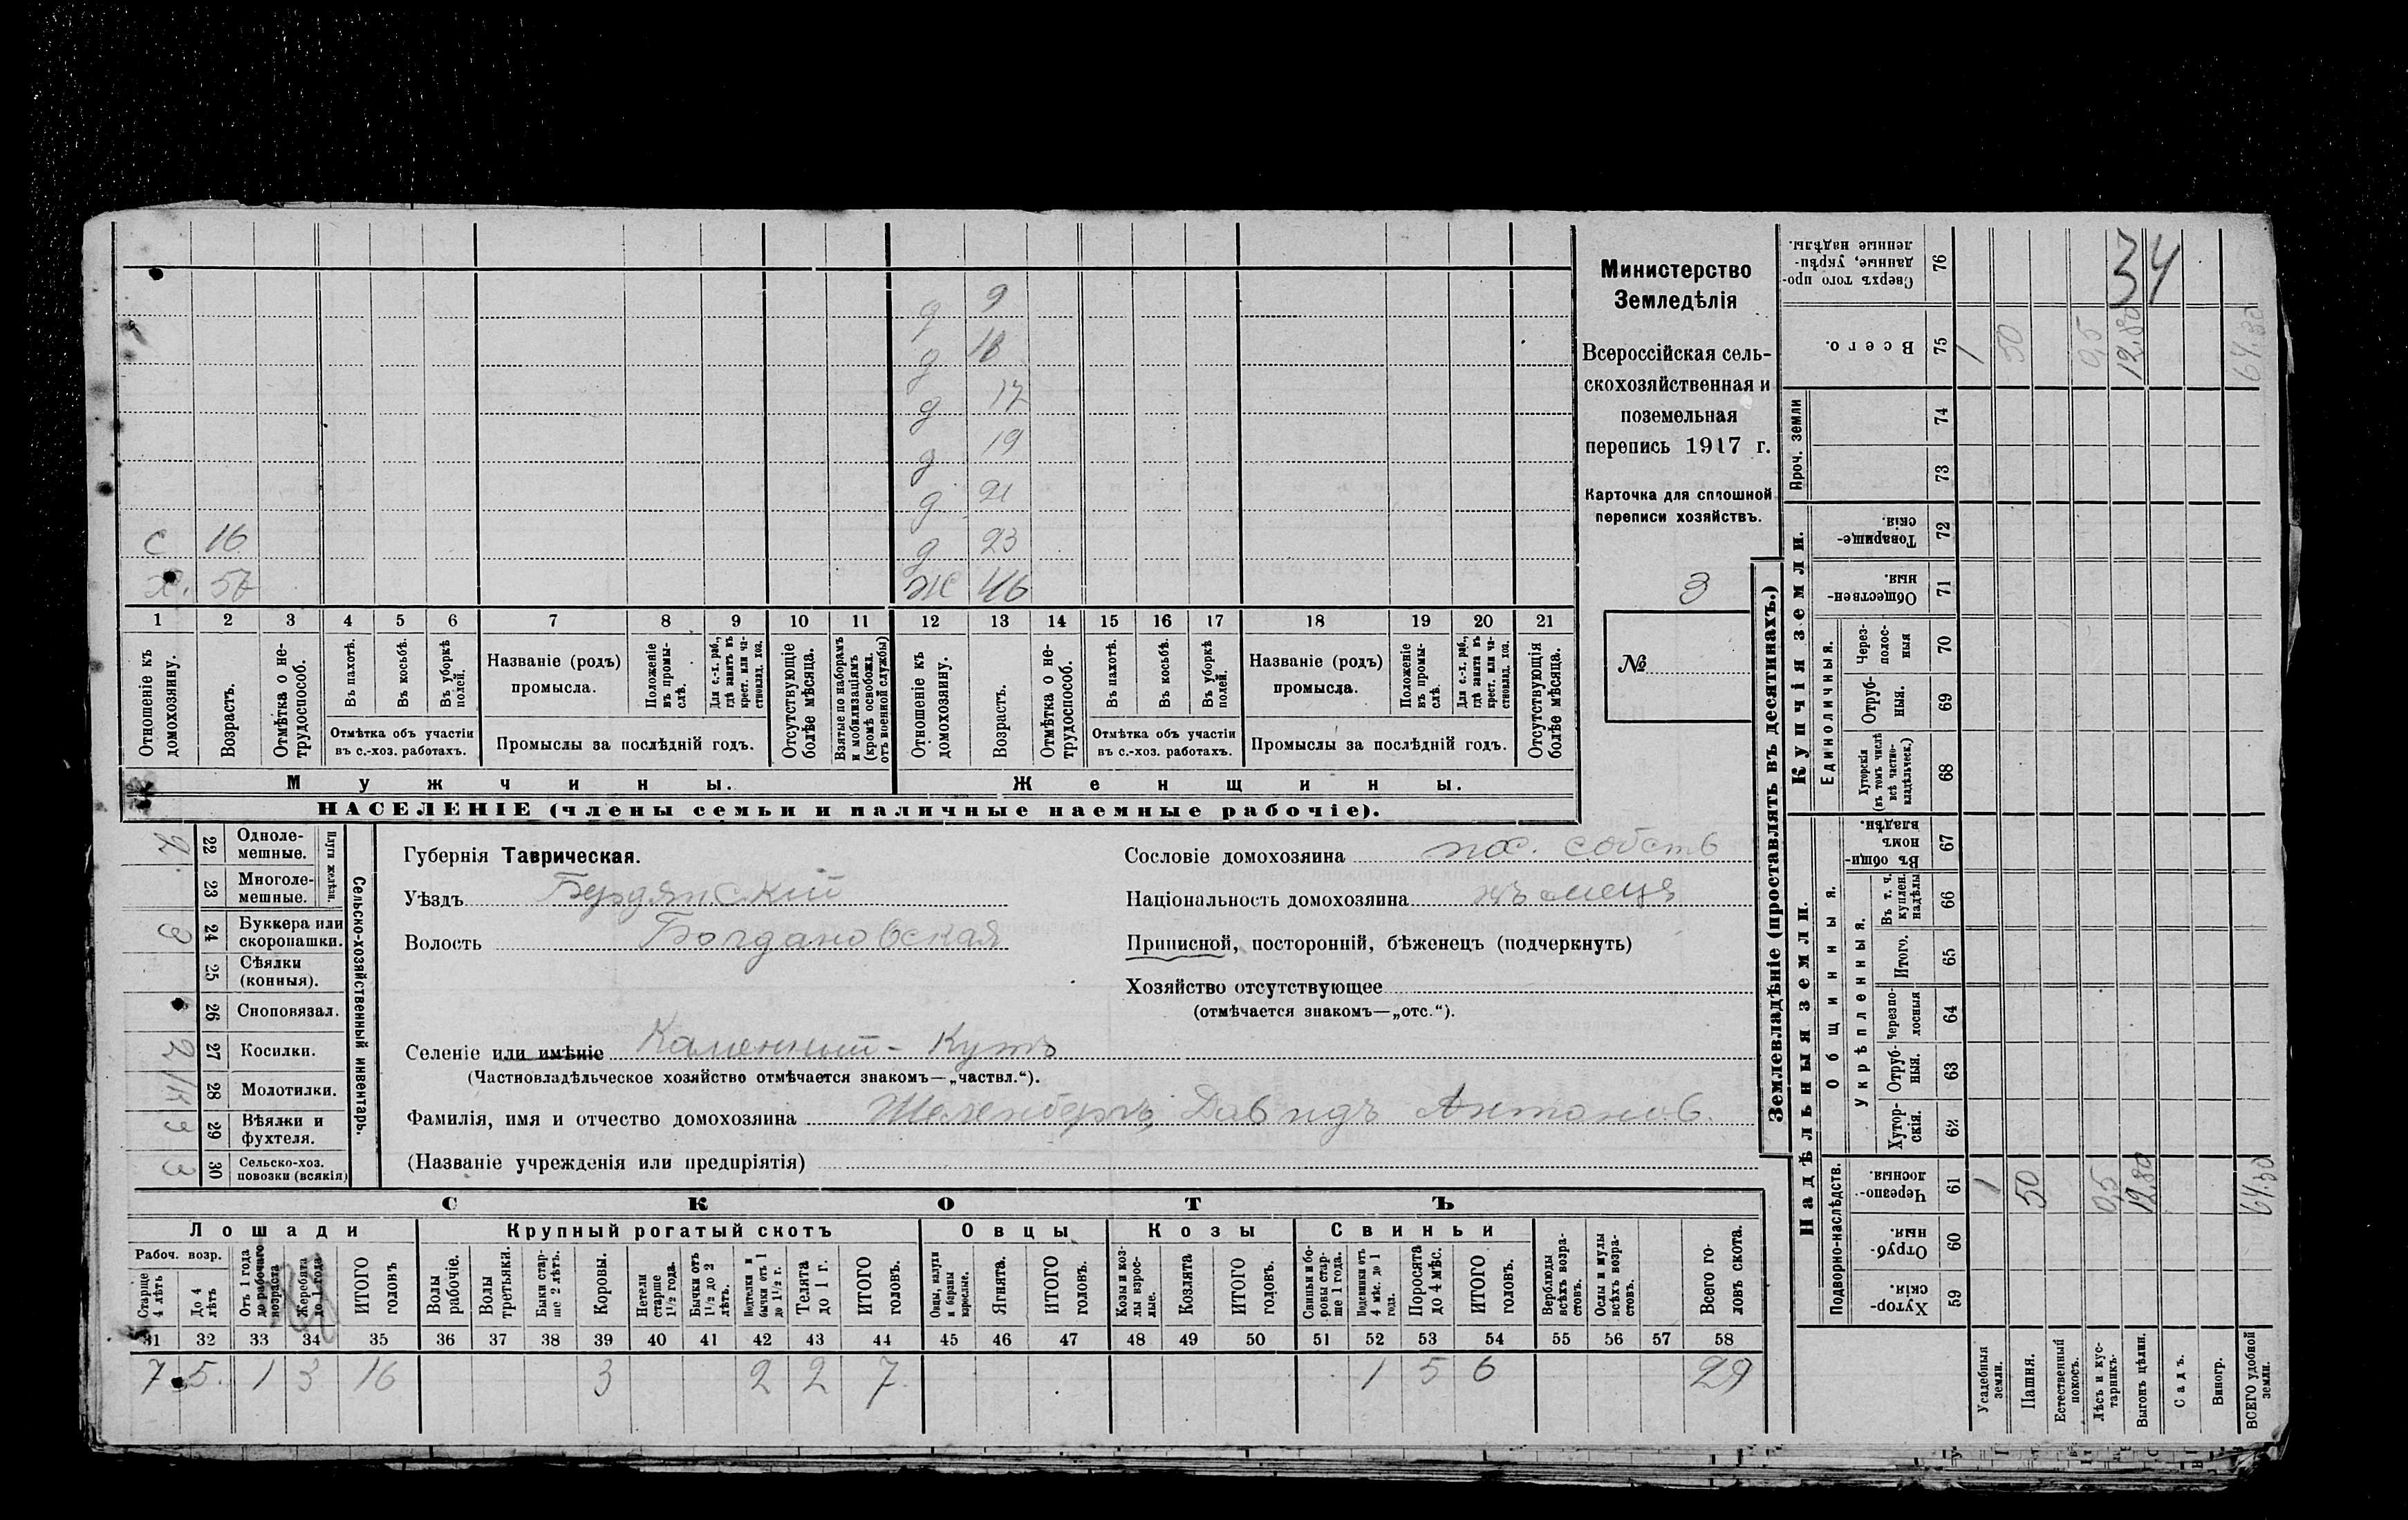 д 9
д
д 17
д 19
д 21
с 16 д 23
х. 57 ж 46
1 2 3 4 5 6 7 8 9 10 11 12 13 14 15 16 17 18 19 20 21
Отношеніе къ домохозяину.
Возрастъ.
Отмѣтка о не-
трудоспособ.
Въ пахотѣ.
Въ косьбѣ.
Въ уборкѣ
полей.
Отмѣтка объ участіи
въ с.-хоз. работахъ.
Названіе (родъ)
промысла.
Положеніе
въ промы-
слѣ.
Для с.-х. раб.,
гдѣ занятъ въ
крест. или ча-
стновлад. хоз.
Промыслы за послѣдній годъ.
Отсутствующіе
болѣе мѣсяца.
Взятые по наборамъ
и мобилизаціямъ
(кромѣ освобожд.
отъ военной службы)
Отношеніе къ
домохозяину.
Возрастъ.
Отмѣтка о не-
трудоспособ.
Въ пахотѣ.
Въ косьбѣ.
Въ уборкѣ
полей.
Отмѣтка объ участіи
въ с.-хоз. работахъ.
Названіе (родъ)
промысла.
Положеніе
въ промы-
слѣ.
Для с.-х. раб.,
гдѣ занята въ
крест. или ча-
стновлад. хоз.
Промыслы за послѣдній годъ.
Отсутствующія
болѣе мѣсяца.
Мужчины. Женщины.
НАСЕЛЕНІЕ (члены семьи и наличные наемные рабочіе).
Министерство
Земледѣлія
Всероссійская сель-
скохозяйственная и
поземельная
перепись 1917 г.
Карточка для сплошной
переписи хозяйствъ.
3
№
Сельско-хозяйственный инвентарь.
Плуги желѣзн.
2 22 Одноле-
мешные.
23 Многоле-
мешные.
3 24 Буккера или
скоропашки.
25 Сѣялки
(конныя).
26 Сноповязал.
2 27 Косилки.
28 Молотилки.
3 29 Вѣялки и
фухтеля.
3 30 Сельско-хоз.
повозки (всякія)
Губернія Таврическая.
Уѣздъ Бердянскій
Волость Богдановская
Сословіе домохозяина пос. собств
Національность домохозяина нѣмецъ
Приписной, посторонній, бѣженецъ (подчеркнуть)
Хозяйство отсутствующее
(отмѣчается знакомъ—„отс.“).
Селеніе или имѣніе Каменный-Кутъ
(Частновладѣльческое хозяйство отмѣчается знакомъ—„частвл.“).
Фамилія, имя и отчество домохозяина Шеленбергъ, Давидъ Антонов.
(Названіе учрежденія или предпріятія)
СКОТЪ
Лошади Крупный рогатый скотъ Овцы Козы Свиньи
Рабоч. возр.
Старше
4 лѣтъ
До 4
лѣтъ
Отъ 1 года
до рабочаго
возраста
Жеребята
до 1 года
ИТОГО
головъ
Волы
рабочіе.
Волы
третьяки.
Быки стар-
ше 2 лѣтъ.
Коровы.
Нетели
старше
1½ года.
Бычки отъ
1½ до 2
лѣтъ.
Подтелки и
бычки отъ 1
до 1½ г.
Телята
до 1 г.
ИТОГО
головъ.
Овцы, валухи
и бараны
взрослые.
Ягнята.
ИТОГО
головъ.
Козы и коз-
лы взрос-
лые.
Козлята
ИТОГО
головъ.
Свиньи и бо-
ровы стар-
ше 1 года.
Подсвинки отъ
4 мѣс. до 1
года.
Поросята
до 4 мѣс.
ИТОГО
головъ.
Верблюды
всѣхъ возра-
стовъ.
Ослы и мулы
всѣхъ возра-
стовъ.
Всего го-
ловъ скота.
31 32 33 34 35 36 37 38 39 40 41 42 43 44 45 46 47 48 49 50 51 52 53 54 55 56 57 58
7 5. 1 3 16 3 2 2 7 1 5 6 29
Землевладѣніе (проставлять въ десятинахъ.)
Надѣльныя земли.
Купчія земли.
Проч. земли
Подворно-наслѣдств.
Общинныя.
Укрѣпленныя.
Единоличныя.
Сверхъ того про-
данные, укрѣп-
ленные надѣлы. 76 34
Всего. 75 1 50 0,5 12.80 64.30
74
73
Товарище-
скія. 72
Обществен-
ныя. 71
Через-
полос-
ныя 70
Отруб-
ныя. 69
Хуторскія
(въ томъ числѣ
всѣ частно-
владѣльческ.) 68
Въ общи-
номъ
владѣн. 67
Въ т. ч.
куплен.
надѣлы 66
Итого. 65
Черезпо-
лосныя 64
Отруб-
ныя. 63
Хутор-
скія. 62
Черезпо-
лосныя. 61 1 50 0,5 12.80 64.30
Отруб-
ныя. 60
Хутор-
скія. 59
Усадебныя
земли.
Пашня.
Естественный
покосъ.
Лѣсъ и кус-
тарникъ.
Выгонъ цѣлин.
Садъ.
Виногр.
ВСЕГО удобной
земли.